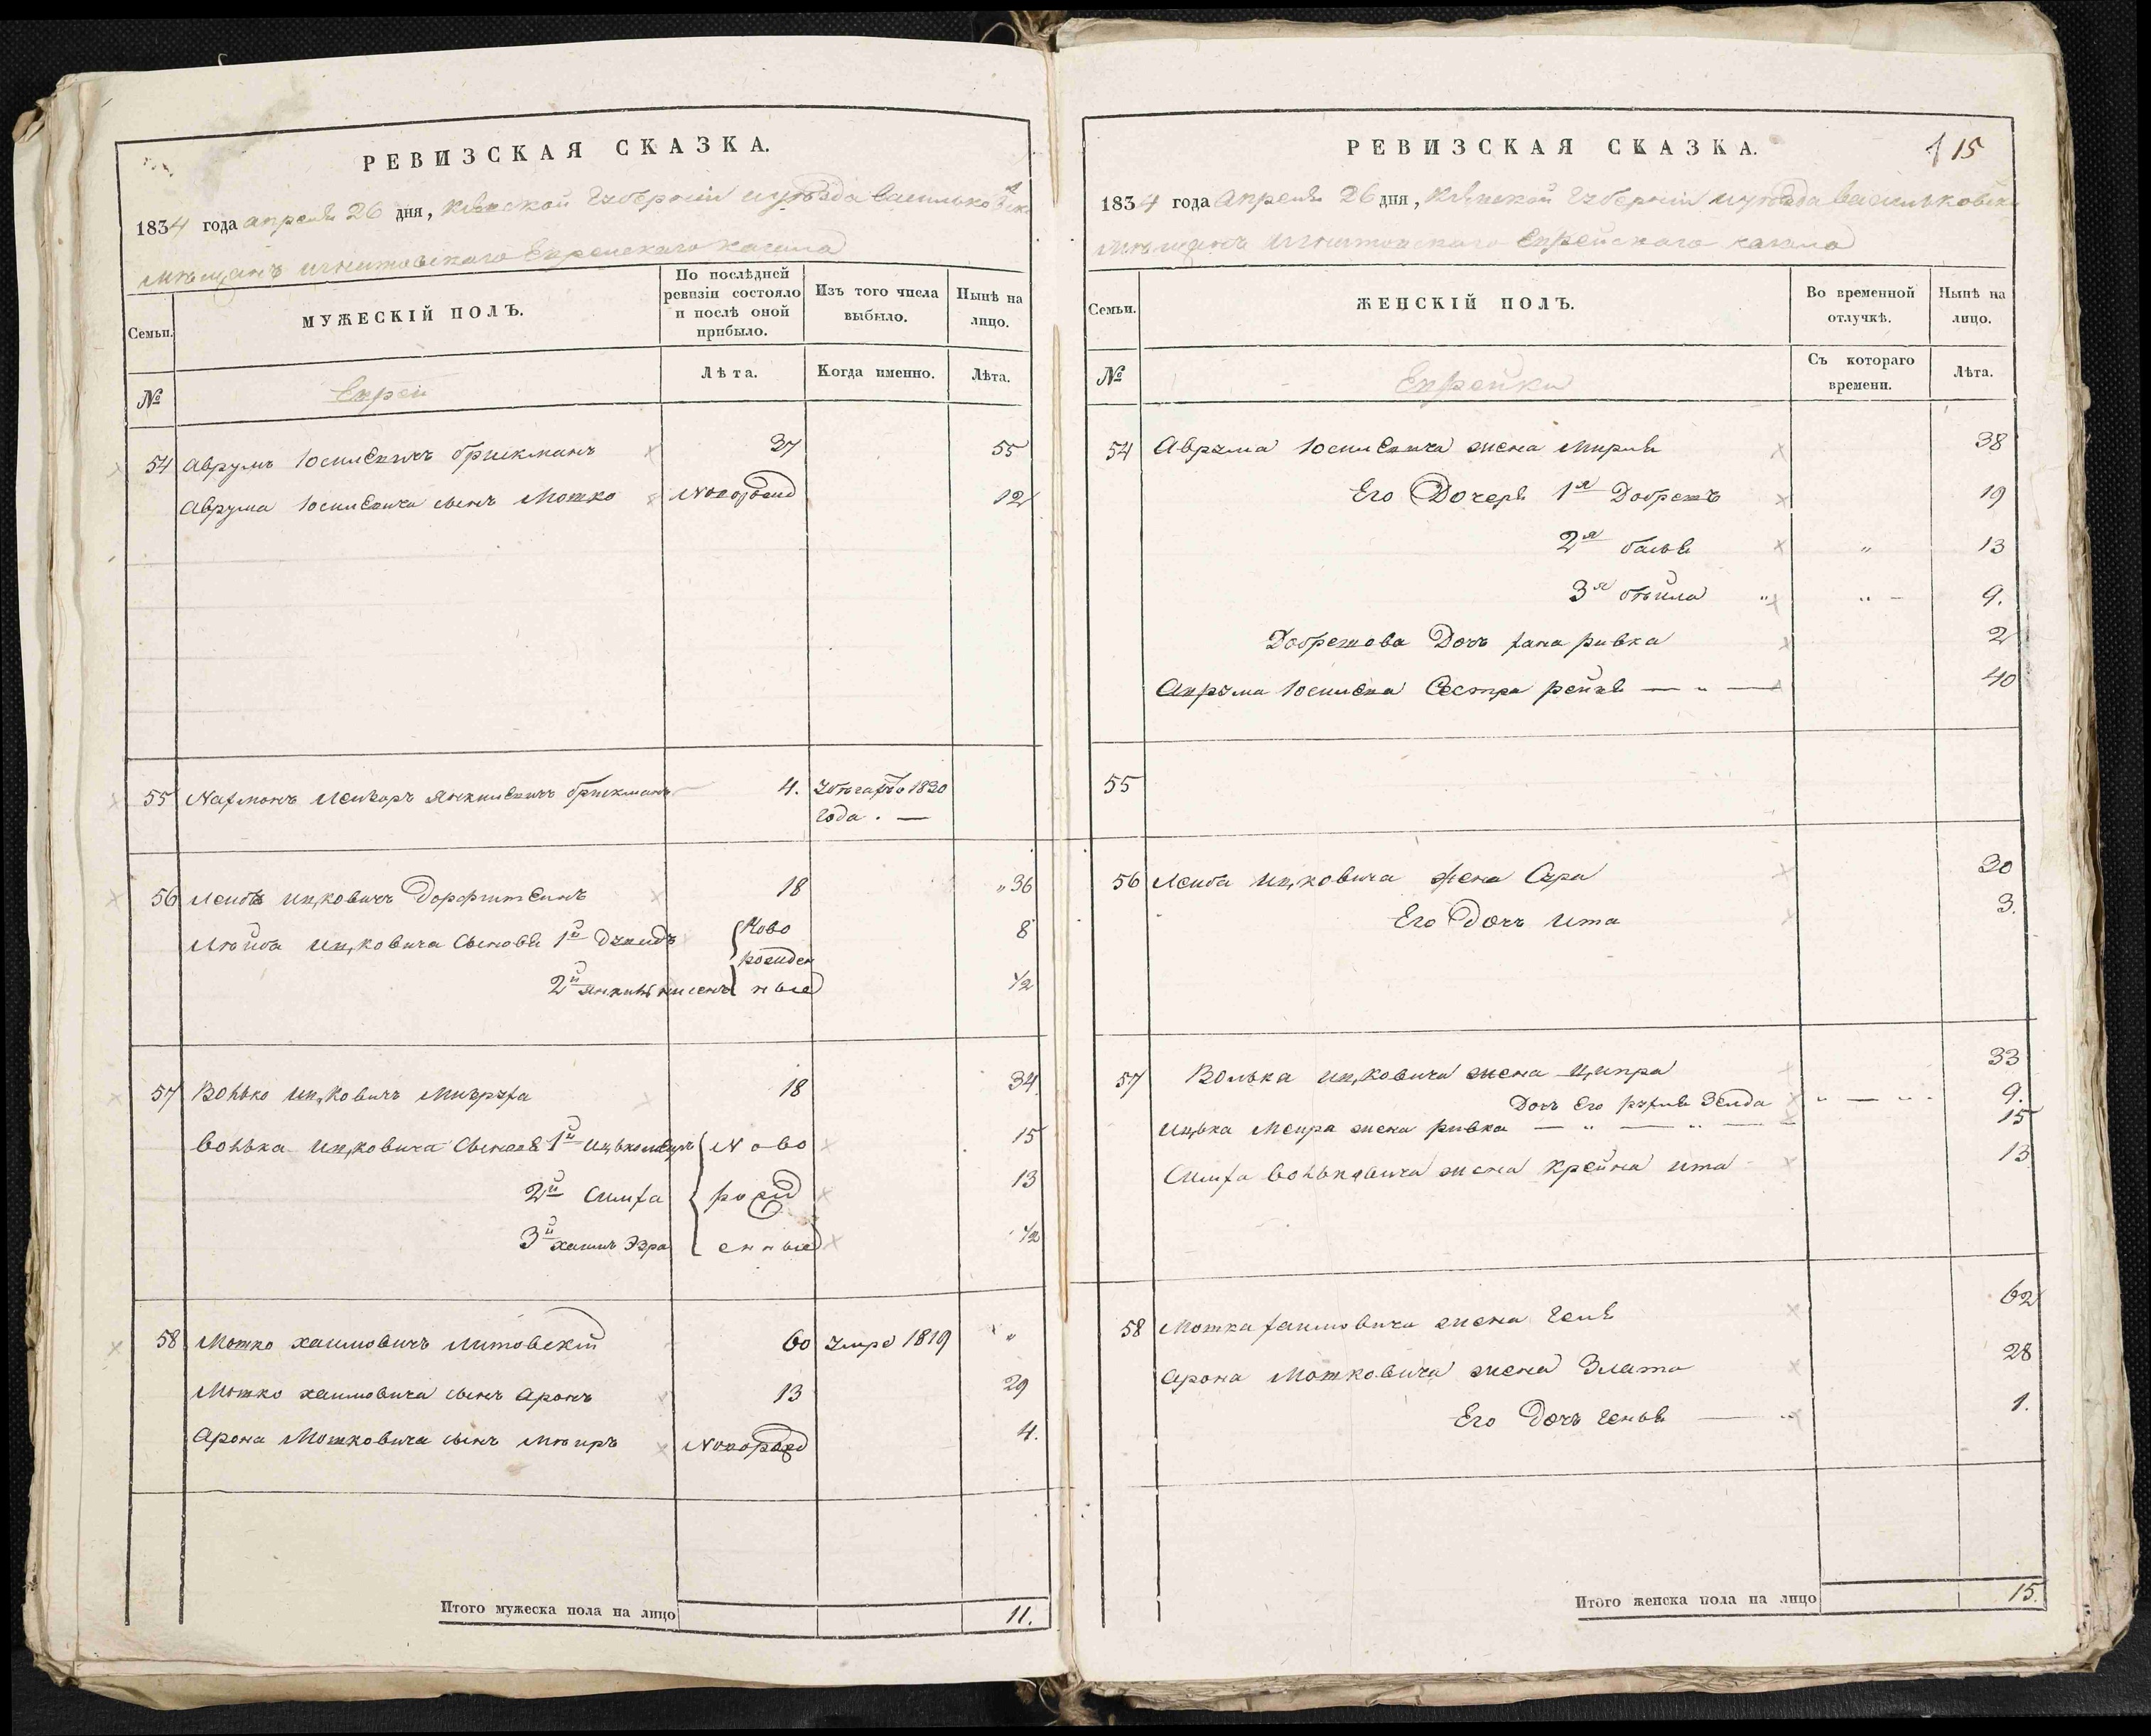 РЕВИЗСКАЯ СКАЗКА.
1834 года апреля 26 дня, Кіевской Губерніи и уѣзда Васильковска
мѣщанъ Игнатовскаго Еврейскаго кагала
Семьи.
МУЖЕСКІЙ ПОЛЪ.
По послѣдней ревизіи состояло и послѣ оной прибыло.
Изъ того числа выбыло.
Нынѣ на лицо.
№
Евреи
Лѣта.
Когда именно.
Лѣта.
54 Аврумъ Іосилевичъ Брикманъ 37 55
Аврума Іосилевича сынъ Мотко Новорожд 12
55 Нахманъ Лейзоръ Янкилевичъ Брикманъ 4. 1830
года . —
56 Лейбъ Ицковичъ 18 „ 36
Лейба Ицковича Сыновья 1й Дувидъ Ново 8
рожден
2й ные 1/2
57 Волько Ицковичъ 18 34
Волька Ицковича Сыновья 1й Ицько Меиръ Ново 15
2й Симха рожд 13
3й Хаимъ Эзра енные 1/2
58 Мотко Хаимовичъ Литовскій 60 умре 1819 „
Мотко Хаимовича сынъ Аронъ 13 29
Арона Мотковича сынъ Мѣиръ Новорожд 4.
Итого мужеска пола на лицо 11.
РЕВИЗСКАЯ СКАЗКА.
15
1834 года Апреля 26 дня, Кіевской Губерніи и уѣзда Васильковска
мѣщанъ Игнатовскаго Еврейскаго кагала
Семьи.
ЖЕНСКІЙ ПОЛЪ.
Во временной отлучкѣ.
Нынѣ на лицо.
№
Еврейки
Съ котораго времени.
Лѣта.
54 Аврума Іосилевича жена Миріля 38
Его Дочеря 1я Добрешъ 19
2я бася „ 13
3я бѣйла „ „ – 9.
Добрешова Дочь хана ривка 2
Аврума Іосилева Сестра рейзя — „ — 40
55
56 Лейба Ицковича Жена Сура 30
Его Дочь Ита 3.
57 Волька Ицковича жена Ципра 33
Дочь Его рухля Зелда „ — „ 9.
Ицька Меира жена ривка — „ — „ — 15
Симха Вольковича жена Крейна ита 13
58 Мотка хаимовича жена Геня 62
Арона Мотковича жена Злата 28
Его Дочь Геня — „ 1.
Итого женска пола на лицо 15.